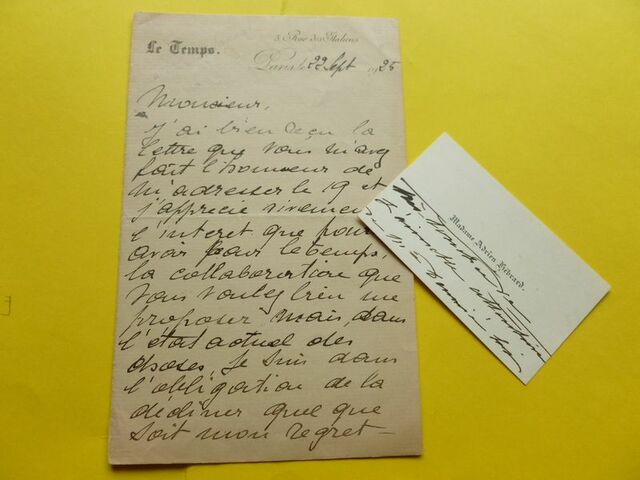 Le Temps.
5, Rue des Italiens
Paris, le 22 Sept 1925
Monsieur,
J'ai bien reçu la
lettre que vous m'avez
fait l'honneur de
m'adresser le 19 et
j'apprécie vivement
l'intérêt que pour
avoir pour le temps,
la collaboration que
vous voulez bien me
proposer mais, dans
l'état actuel des
choses, je suis dans
l'obligation de la
décliner quel que
soit mon regret –
Madame Adrien Hébrard.